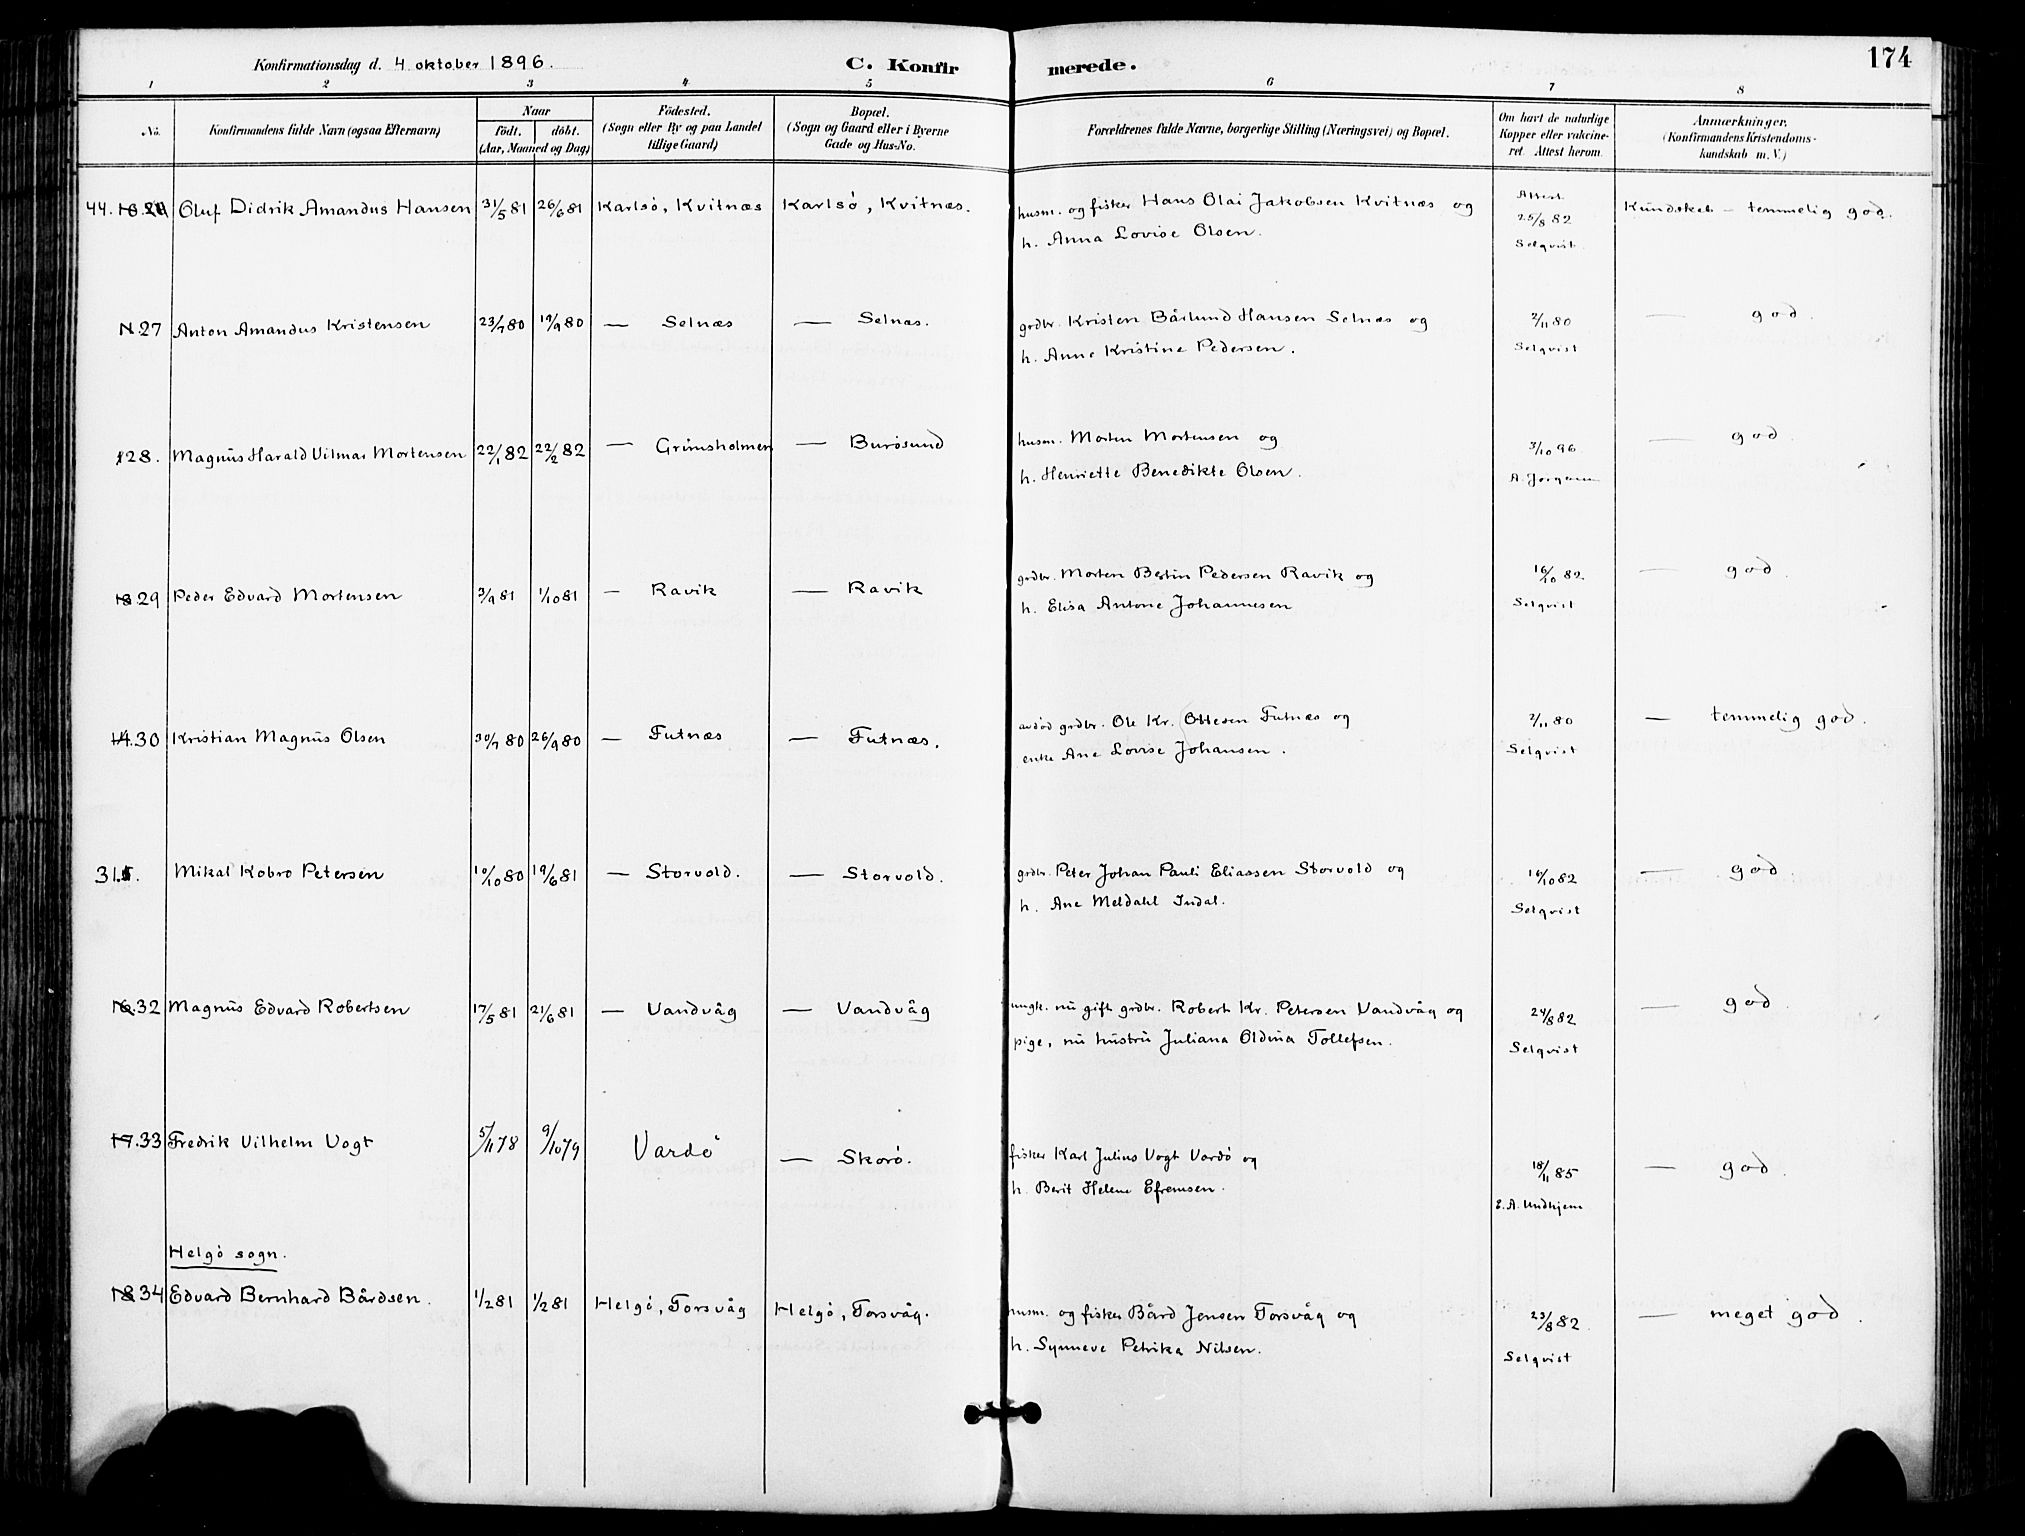 Konfirmationsdag d. 4. oktober 1896. C. Konfirmerede. 174
1 2 3 4 5 6 7 8
No. Konfirmandens fulde Navn (ogsaa Efternavn) Naar født. døbt. (Aar, Maaned og Dag) Födested. (Sogn eller By og paa Landet tillige Gaard) Bopæl. (Sogn og Gaard eller i Byerne Gade og Hus-No. Forældrenes fulde Navne, borgerlige Stilling (Næringsvei) og Bopæl. Om havt de naturlige Kopper eller vakcineret. Attest herom. Anmærkninger, (Konfirmandens Kristendomskundskab m. V.)
Oluf Didrik Amandus Hansen 31/5 81 26/6 81 Karlsö, Kvitnæs Karlsö, Kvitnæs. husm. og fisker Hans Olai Jakobsen Kvitnæs og Attest 25/8 82 Kundskab – temmelig god.
h. Anna Lovise Olsen. Selqvist.
27 Anton Amandus Kristensen 23/7 80 19/9 80 — Selnæs — Selnæs. grdbr. Kristen Bårlund Hansen Selnæs og 2/11 80 — god.
h. Anne Kristine Pedersen. Selqvist
28. Magnus Harald Vilmar Mortensen 22/1 82 22/2 82 — Grimsholmen — Burösund husm. Morten Mortensen og 3/10 96 — god.
h. Henriette Benedikte Olsen.
29 Peder Edvard Mortensen 3/9 81 1/10 81 — Ravik — Ravik grdbr. Morten Bertin Pedersen Ravik og 16/10 82 — god.
h. Elisa Antone Johannesen Selqvist
14. 30 Kristian Magnus Olsen 30/7 80 26/9 80 — Futnæs — Futnæs. avdöd grdbr. Ole Kr. Ottesen Futnæs og 2/11 80 — temmelig god.
enke Ane Lovise Johansen. Selqvist
31. Mikal Kobro Petersen 10/10 80 19/6 81 — Storvold. — Storvold. grdbr. Peter Johan Pauli Eliassen Storvold og 16/10 82 — god.
h. Ane Meldahl Indal. Selqvist
16. 32 Magnus Edvard Robertsen 17/5 81 21/6 81 — Vandvåg — Vandvåg ungk. nu gift grdbr. Robert Kr. Petersen Vandvåg og 24/8 82 — god.
pige, nu hustru Juliana Oldina Tollefsen. Selqvist
17. 33 Fredrik Vilhelm Vogt 5/11 78 9/10 79 Vardö — Skorö. fisker Karl Julius Vogt Vardö og 18/11 85 — god.
h. Berit Helene Efremsen. E. A. Undhjem
Helgö sogn.
18 34 Edvard Bernhard Bårdsen. 1/2 81 1/2 81 Helgö, Torsvåg Helgö, Torsvåg. husm. og fisker Bård Jensen Torsvåg og 23/8 82 — meget god.
h. Synneve Petrika Nilsen. Selqvist